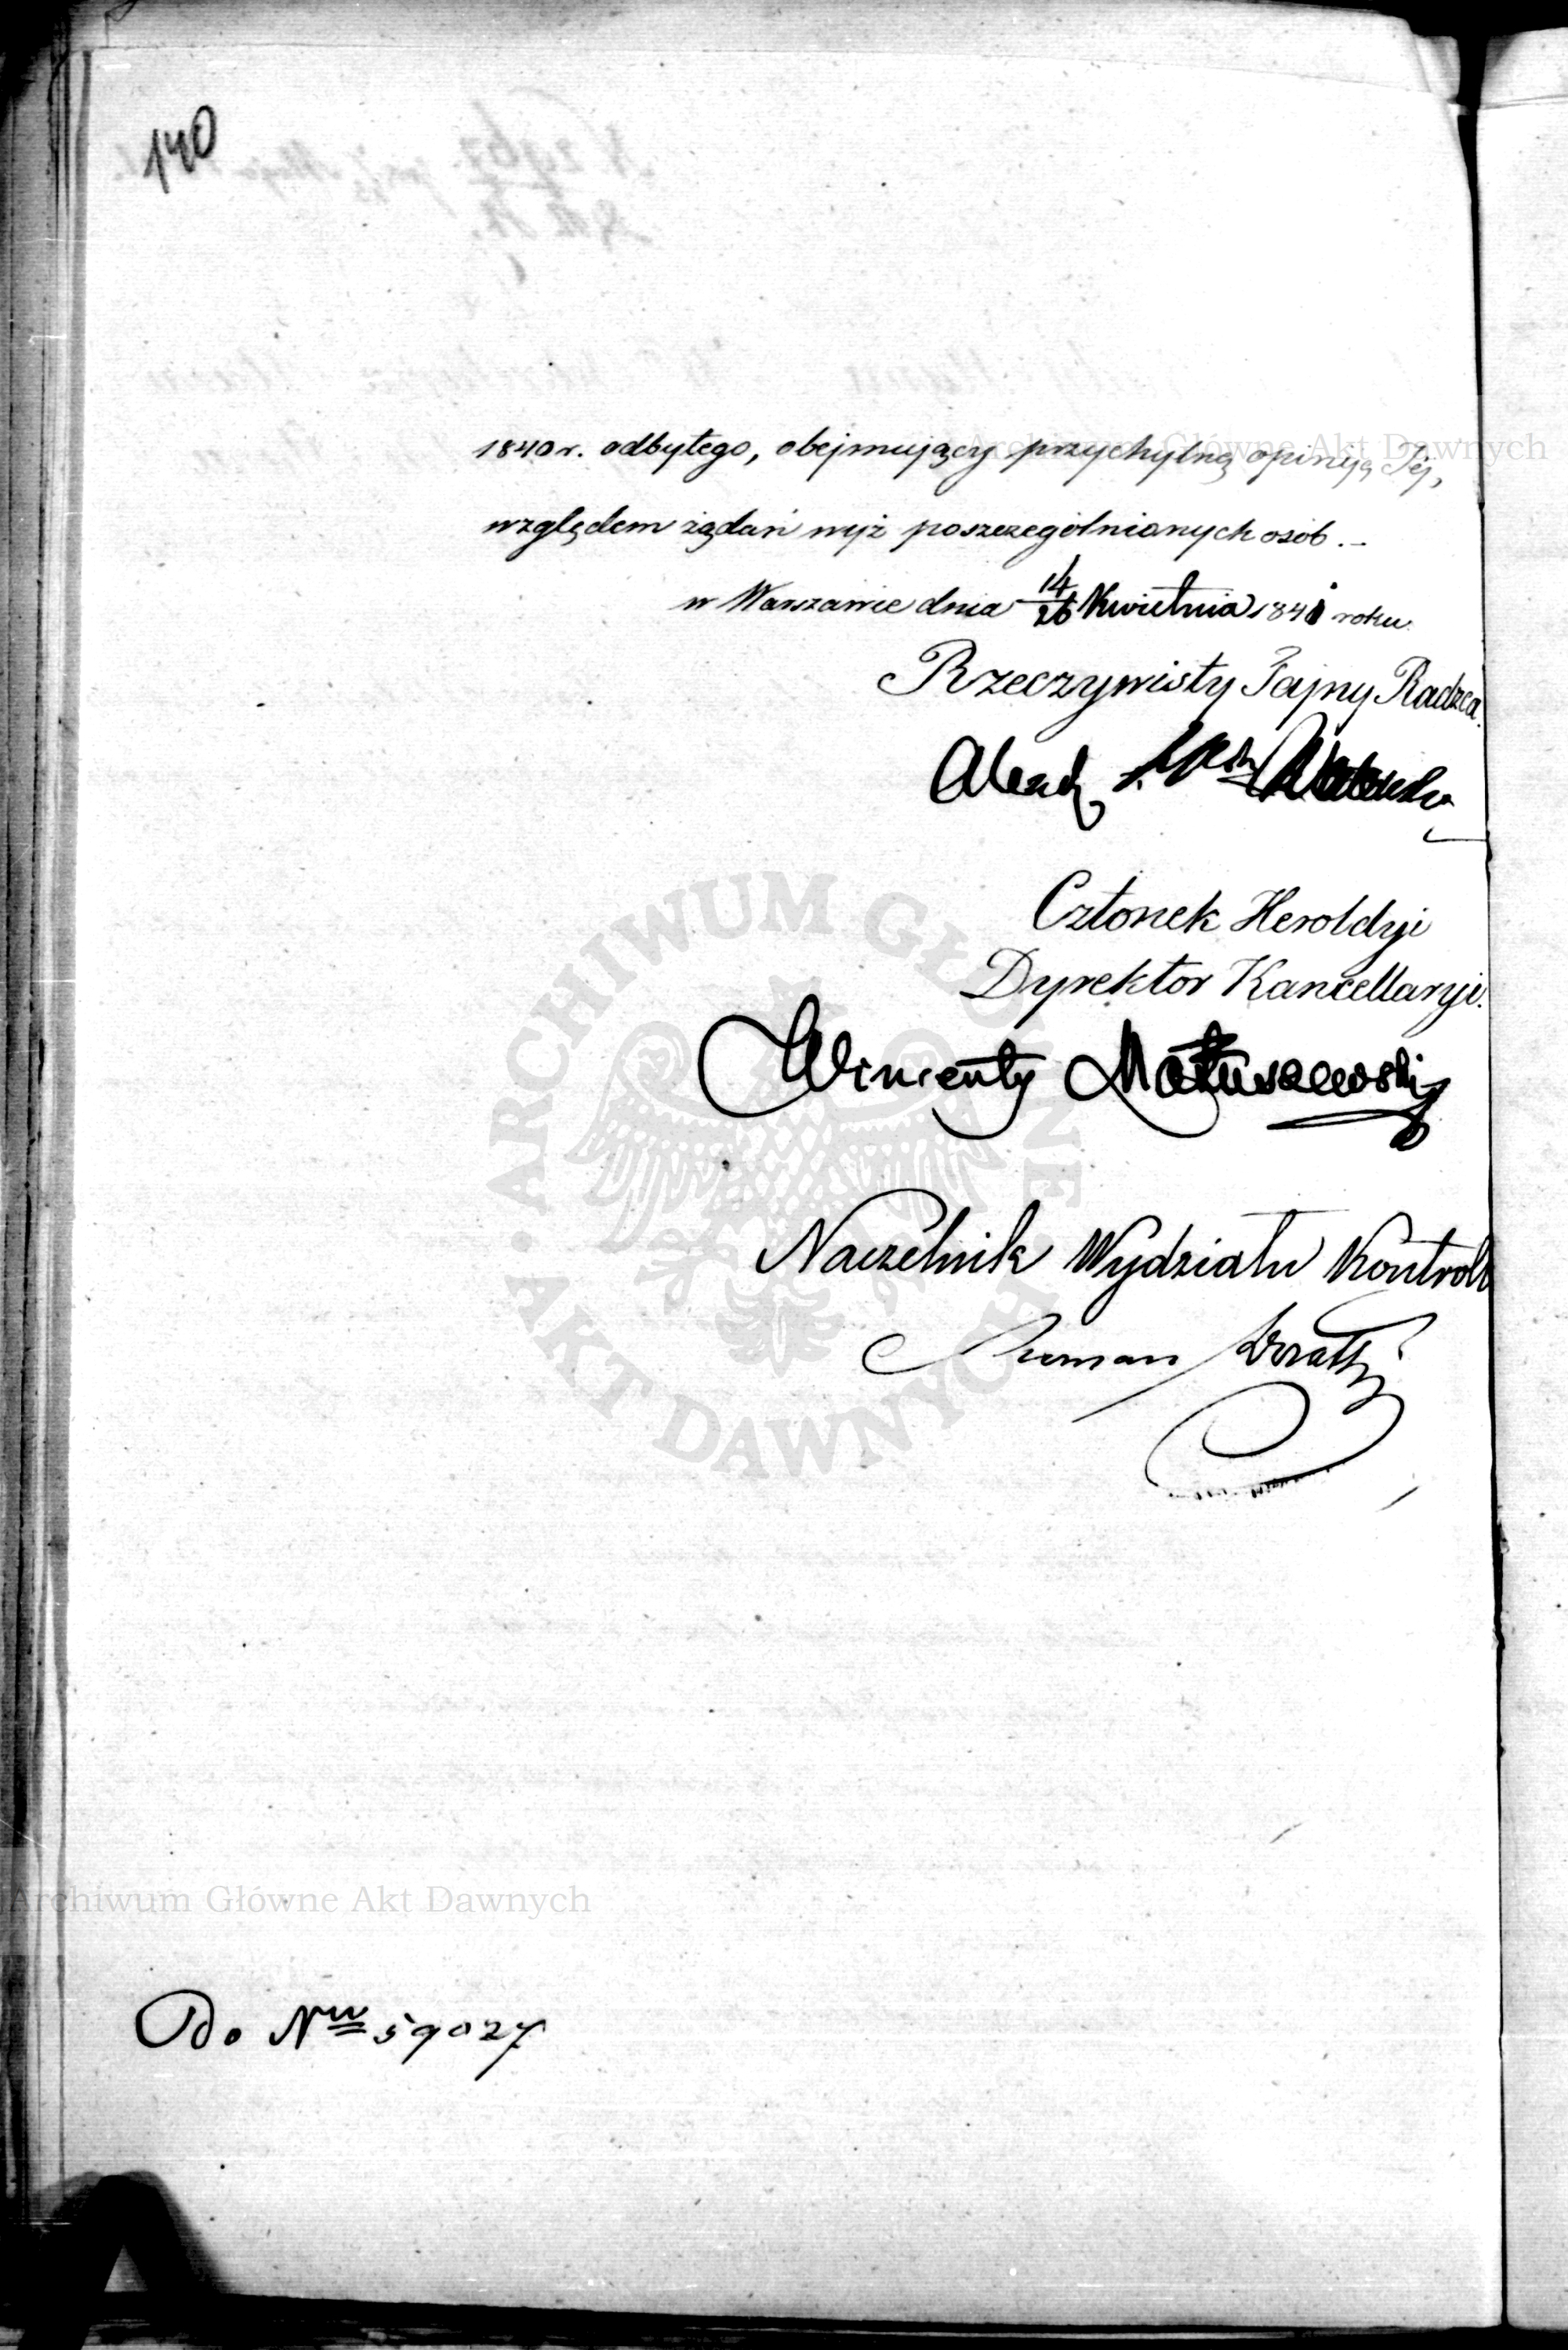 140
1840 r. odbytego, obejmujący przychylną opiniją Jéj,
względem żądań wyż poszczególnianych osób. –
w Warszawie dnia 14/26 Kwietnia 1841 roku.
Rzeczywisty Tajny Radzca.
Alexdr
Członek Heroldyi
Dyrektor Kancellaryi.
Wincenty Matuszewski
Naczelnik Wydziału Kontroli
Roman
Do Nru 59027
Archiwum Główne Akt Dawnych
ARCHIWUM GŁÓWNE
AKT DAWNYCH
Archiwum Główne Akt Dawnych